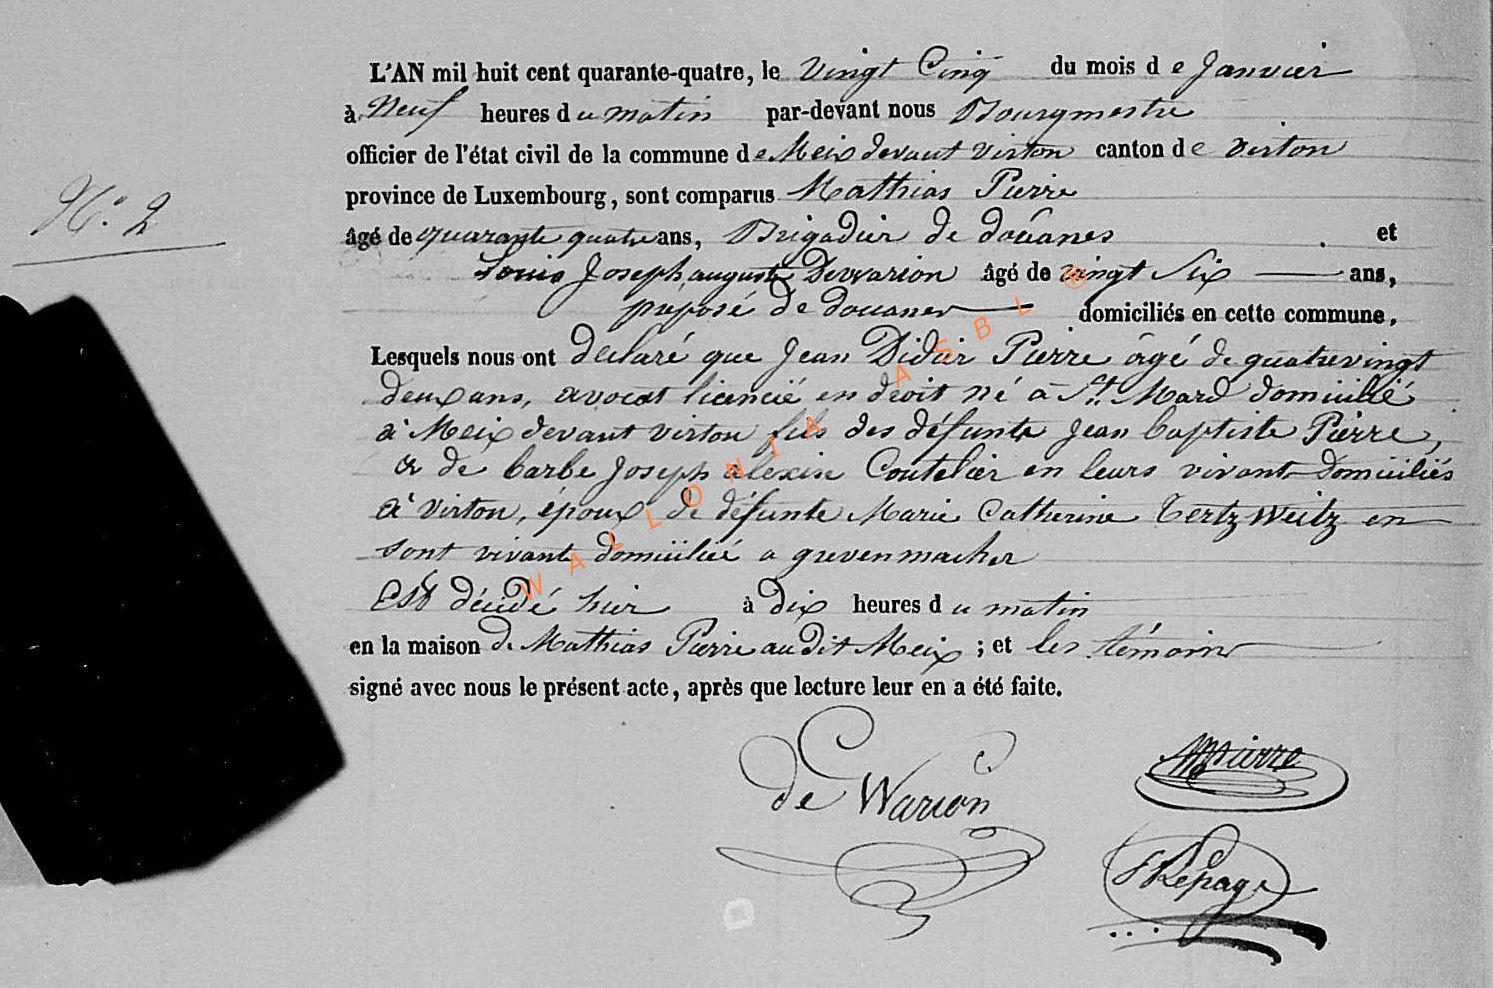 L'AN mil huit cent quarante-quatre, le vingt Cinq du mois de Janvier
à Neuf heures du matin par-devant nous Bourgmestre
officier de l'état civil de la commune de Meix devant virton canton de virton
N.° 2
province de Luxembourg, sont comparus Mathias Pierre
âgé de quarante quatre ans, Brigadier de douanes et
Louis Joseph auguste Dewarion âgé de vingt Six ans,
preposé de douanes domiciliés en cette commune.
Lesquels nous ont declaré que Jean Didier Pierre âgé de quatrevingt
deux ans, avocat licencié en droit né à St. Mard domicilié
à Meix devant virton fils des défunts Jean baptiste Pierre,
& de barbe Joseph alexise Coutelier en leurs vivant domiciliés
à virton, époux de défunte Marie Catherine Tertzweitz en
sont vivant domicilié a grevenmacher
Est décédé hier à dix heures du matin
en la maison de Mathias Pierre audit Meix ; et les témoins
signé avec nous le présent acte, après que lecture leur en a été faite.
WALLONIA ASBL ®
de Warion
MPierre
Lepage